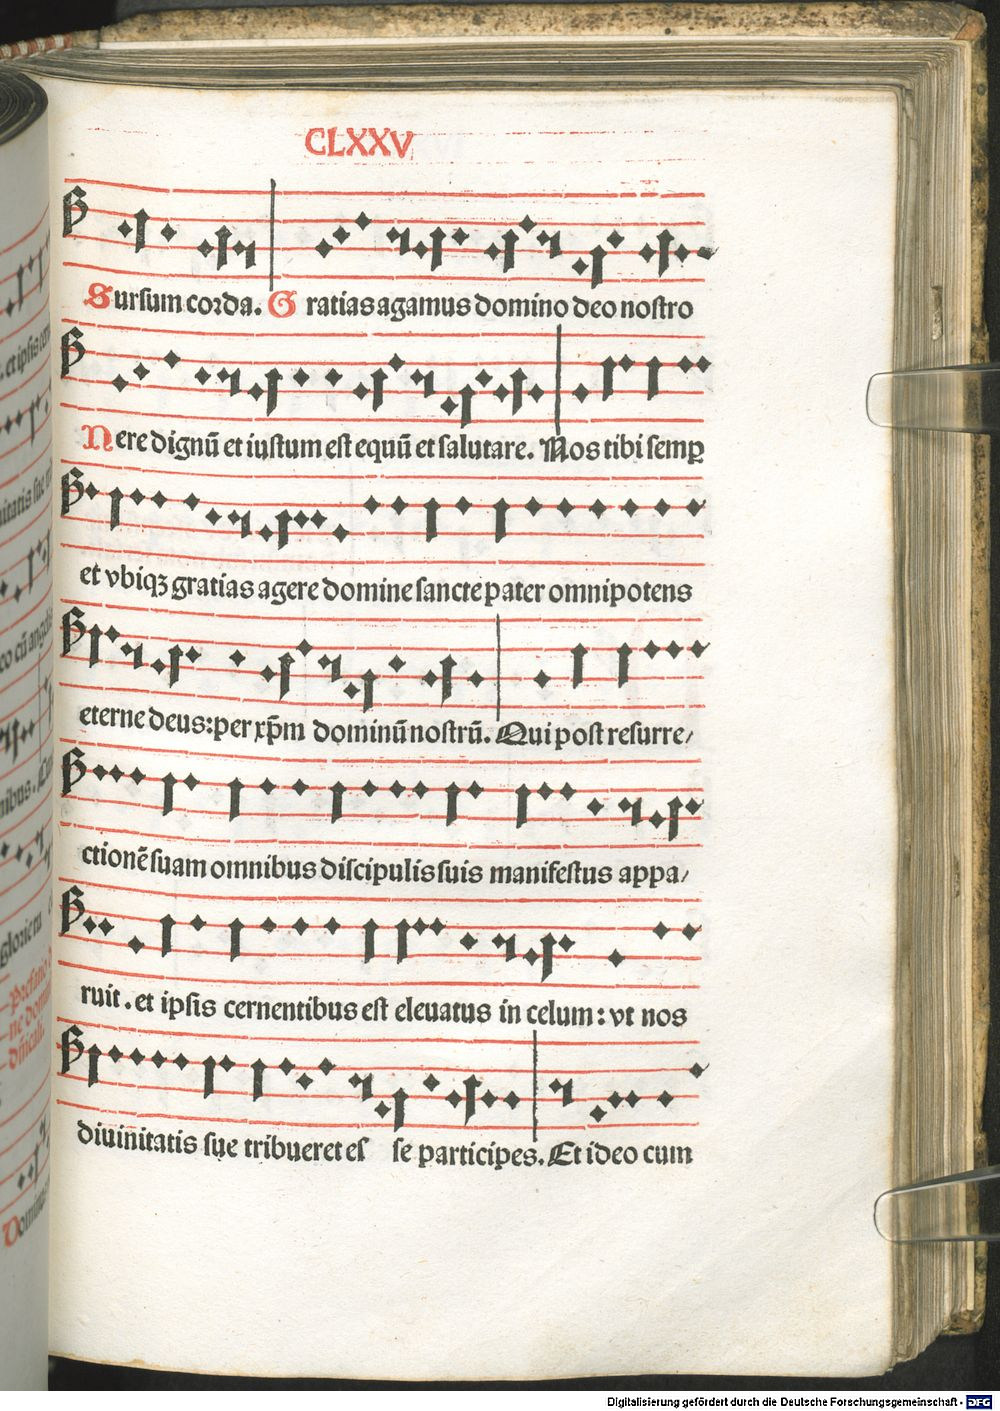 CLXXV
Sursum corda. Gratias agamus domino deo nostro
Uere dignū et iustum est equū et salutare. Nos tibi semꝑ
et vbiqꝫ gratias agere domine sancte pater omnipotens
eterne deus: per xp̄m dominū nostrū. Qui post resurre/
ctionē suam omnibus discipulis suis manifestus appa/
ruit. et ipsis cernentibus est eleuatus in celum: vt nos
diuinitatis sue tribueret es se participes. Et ideo cum
Digitalisierung gefördert durch die Deutsche Forschungsgemeinschaft - DFG